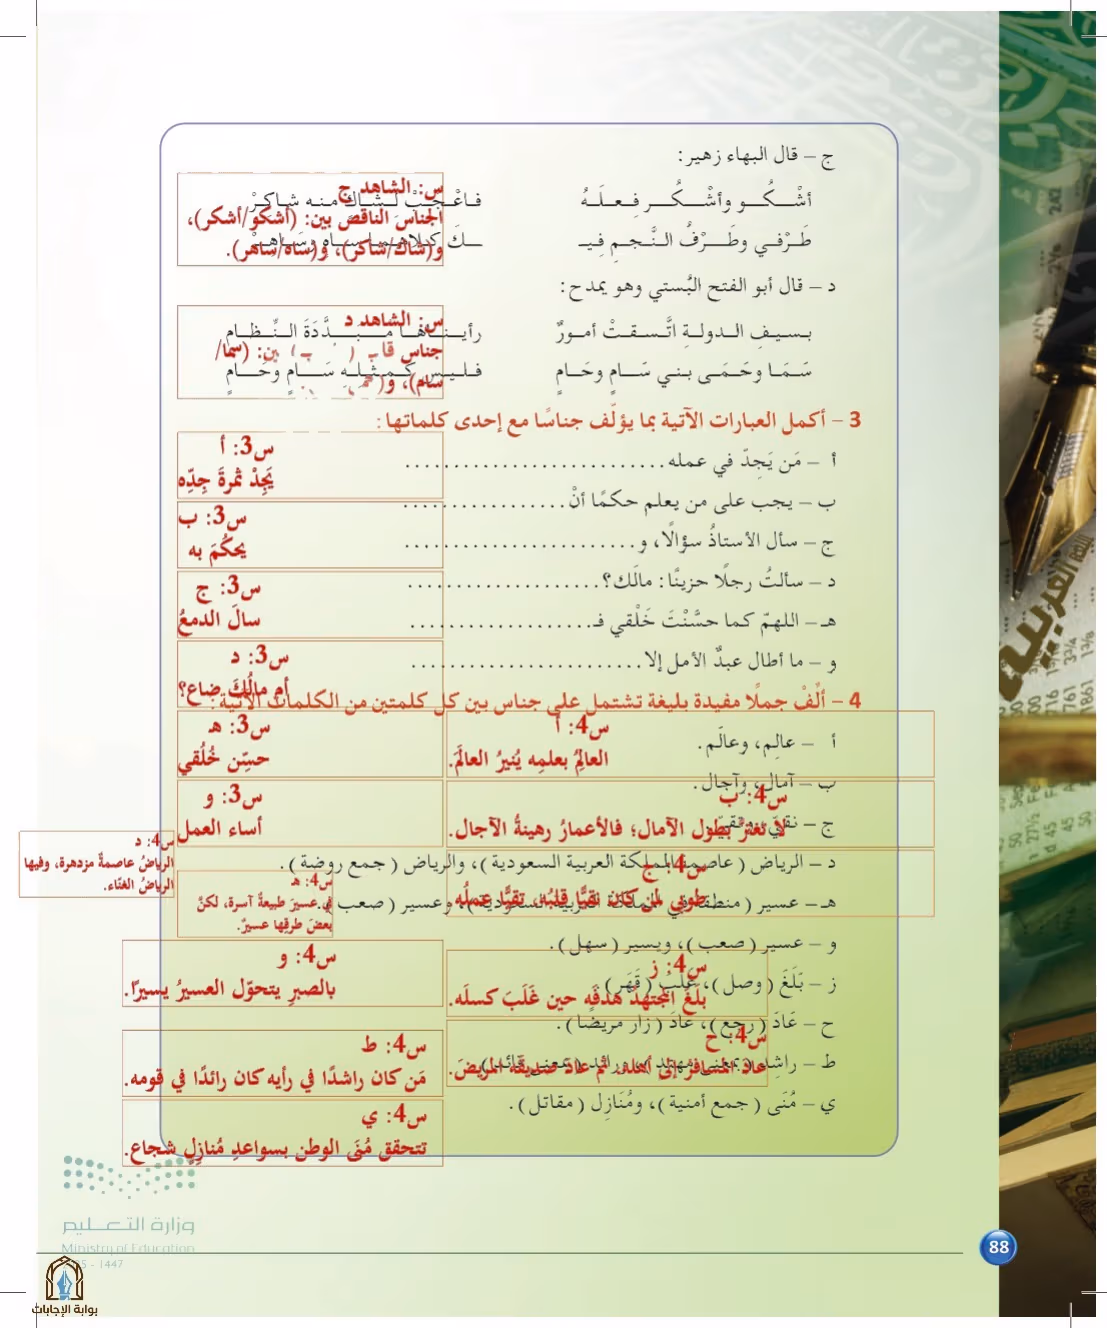 ج – قال البهاء زهير:
أشْــكُــو وأشْــكُــر فِـعـلَـهُ فـاعْـجَـبْ لـشـاكٍ مـنـه شـاكِـرْ
طَــرْفـي وطَــرْفُ الـنَّـجـمِ فِـيـ ــكَ كـلاهـمـا سـاهٍ وسـاهـرْ
س: الشاهد ج
الجناس الناقص بين: (أشكو/أشكر)،
و(شاك/شاكر)، و(ساه/ساهر).
د – قال أبو الفتح البُستي وهو يمدح:
بـسـيـفِ الـدولـةِ اتَّـسـقـتْ أمـورٌ رأيـنـاهـا مـبـدَّدَةَ الـنِّـظـامِ
سَـمَـا وحَـمَـى بـنـي سَـامٍ وحَـامٍ فـلـيـس كـمـثـلـهِ سَـامٍ وحَـامٍ
س: الشاهد د
جناس
بين: (سما/
سام)، و(
3 – أكمل العبارات الآتية بما يؤلّف جناسًا مع إحدى كلماتها:
أ – مَن يَجِدّ في عمله...........................
س3: أ
يَجِدْ ثمرةَ جِدِّه
ب – يجب على من يعلم حكمًا أنْ.................
س3: ب
يحكُمَ به
ج – سأل الأستاذُ سؤالًا، و........................
س3: ج
سالَ الدمعُ
د – سألتُ رجلًا حزينًا: مالَك؟....................
س3: د
أم مالُكَ ضاع؟
هـ – اللهمّ كما حسَّنْتَ خَلْقي فـ...................
س3: هـ
حسِّن خُلُقي
و – ما أطال عبدٌ الأمل إلا........................
س3: و
أساء العمل
4 – ألِّفْ جملًا مفيدة بليغة تشتمل على جناس بين كل كلمتين من الكلمات الآتية:
أ – عالِم، وعالَم.
س4: أ
العالِمُ بعلمِه يُنيرُ العالَمَ.
ب – آمال، وآجال.
س4: ب
لا تغترَّ بطول الآمال؛ فالأعمارُ رهينةُ الآجال.
ج – نقيّ، وتقيّ.
س4: ج
طوبى لمن كان نقيًّا قلبُه، تقيًّا عملُه.
د – الرياض (عاصمة المملكة العربية السعودية)، والرياض (جمع روضة).
س4: د
الرياضُ عاصمةٌ مزدهرة، وفيها
الرياضُ الغنّاء.
هـ – عسير (منطقة في المملكة العربية السعودية)، وعسير (صعب).
س4: هـ
في عسيرَ طبيعةٌ آسرة، لكنَّ
بعضَ طرقِها عسيرٌ.
و – عسير (صعب)، ويسير (سهل).
س4: و
بالصبرِ يتحوّل العسيرُ يسيرًا.
ز – بَلَغَ (وصل)، غَلَبَ (قَهَر)
س4: ز
بلَغَ المجتهدُ هدفَه حين غَلَبَ كسلَه.
ح – عَادَ (رجع)، عَادَ (زار مريضًا).
س4: ح
عادَ المسافرُ إلى أهله، ثم عادَ صديقَه المريضَ.
ط – راشِد
س4: ط
مَن كان راشدًا في رأيه كان رائدًا في قومه.
ي – مُنَى (جمع أمنية)، ومُنَازِل (مقاتل).
س4: ي
تتحقق مُنَى الوطن بسواعدِ مُنازِلٍ شجاع.
وزارة التعليم
Ministry of Education
- 1447
88
بوابة الإجابات